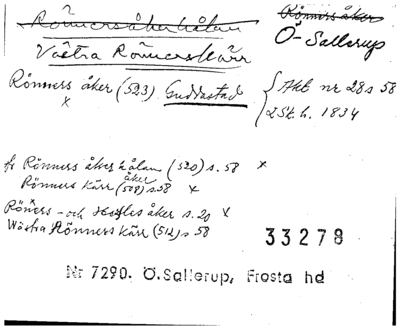 Rönnersåkerhålan
Rönners åker
Västra Rönnerskärr
Ö-Sallerup
Rönners åker (523) Guddastad
x
Akt nr 28 s 58
L Sk. h. 1834
fr Rönners åkers hålan (520) s. 58 x
Rönners kärr åker (508) s. 58 x
Rönners - och åker s. 20 x
Wästra Rönners kärr (512) s 58
33278
Nr 7290. Ö. Sallerup, Frosta hd